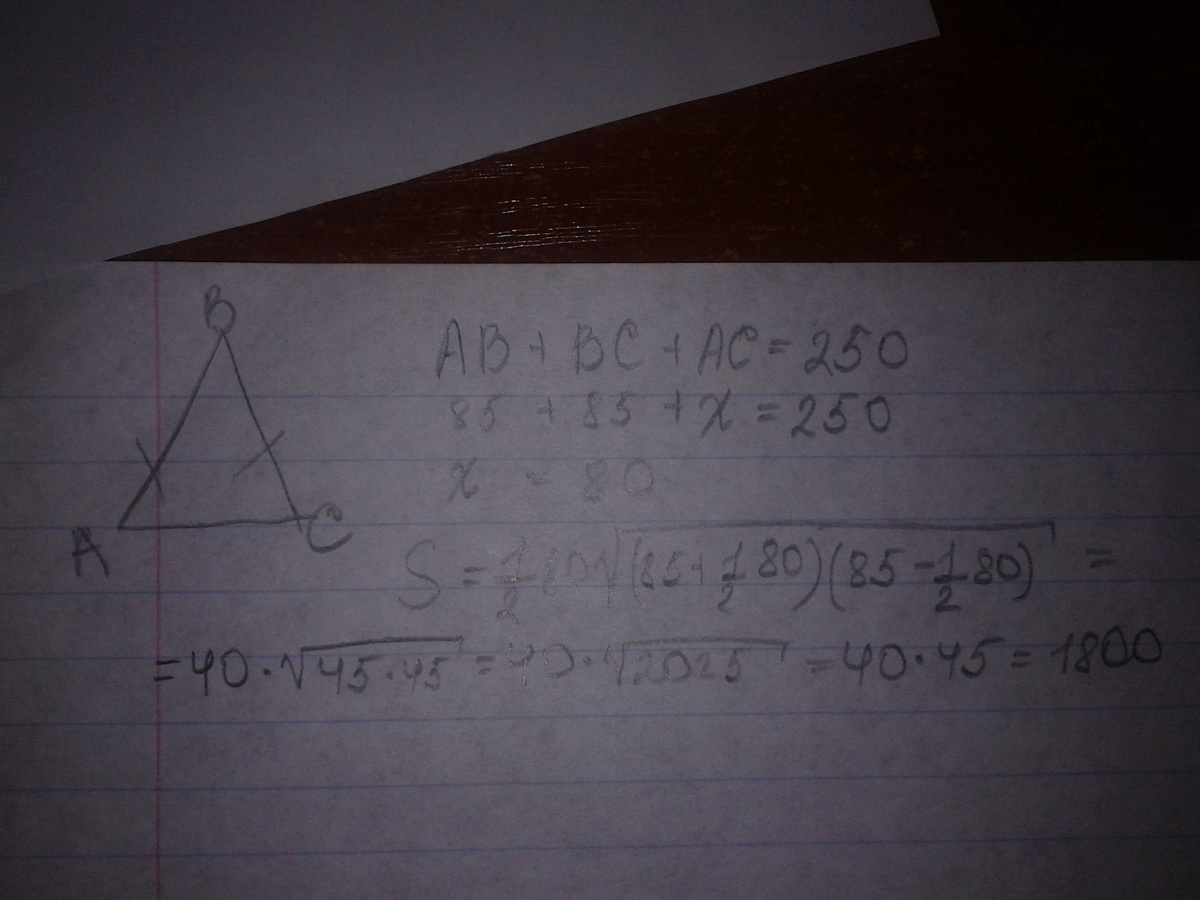 B
A
C
AB + BC + AC = 250
85 + 85 + x = 250
x = 80
S = 1/2 80 √(85 + 1/2 80)(85 - 1/2 80) =
= 40 · √45 · 45 = 40 · √2025 = 40 · 45 = 1800